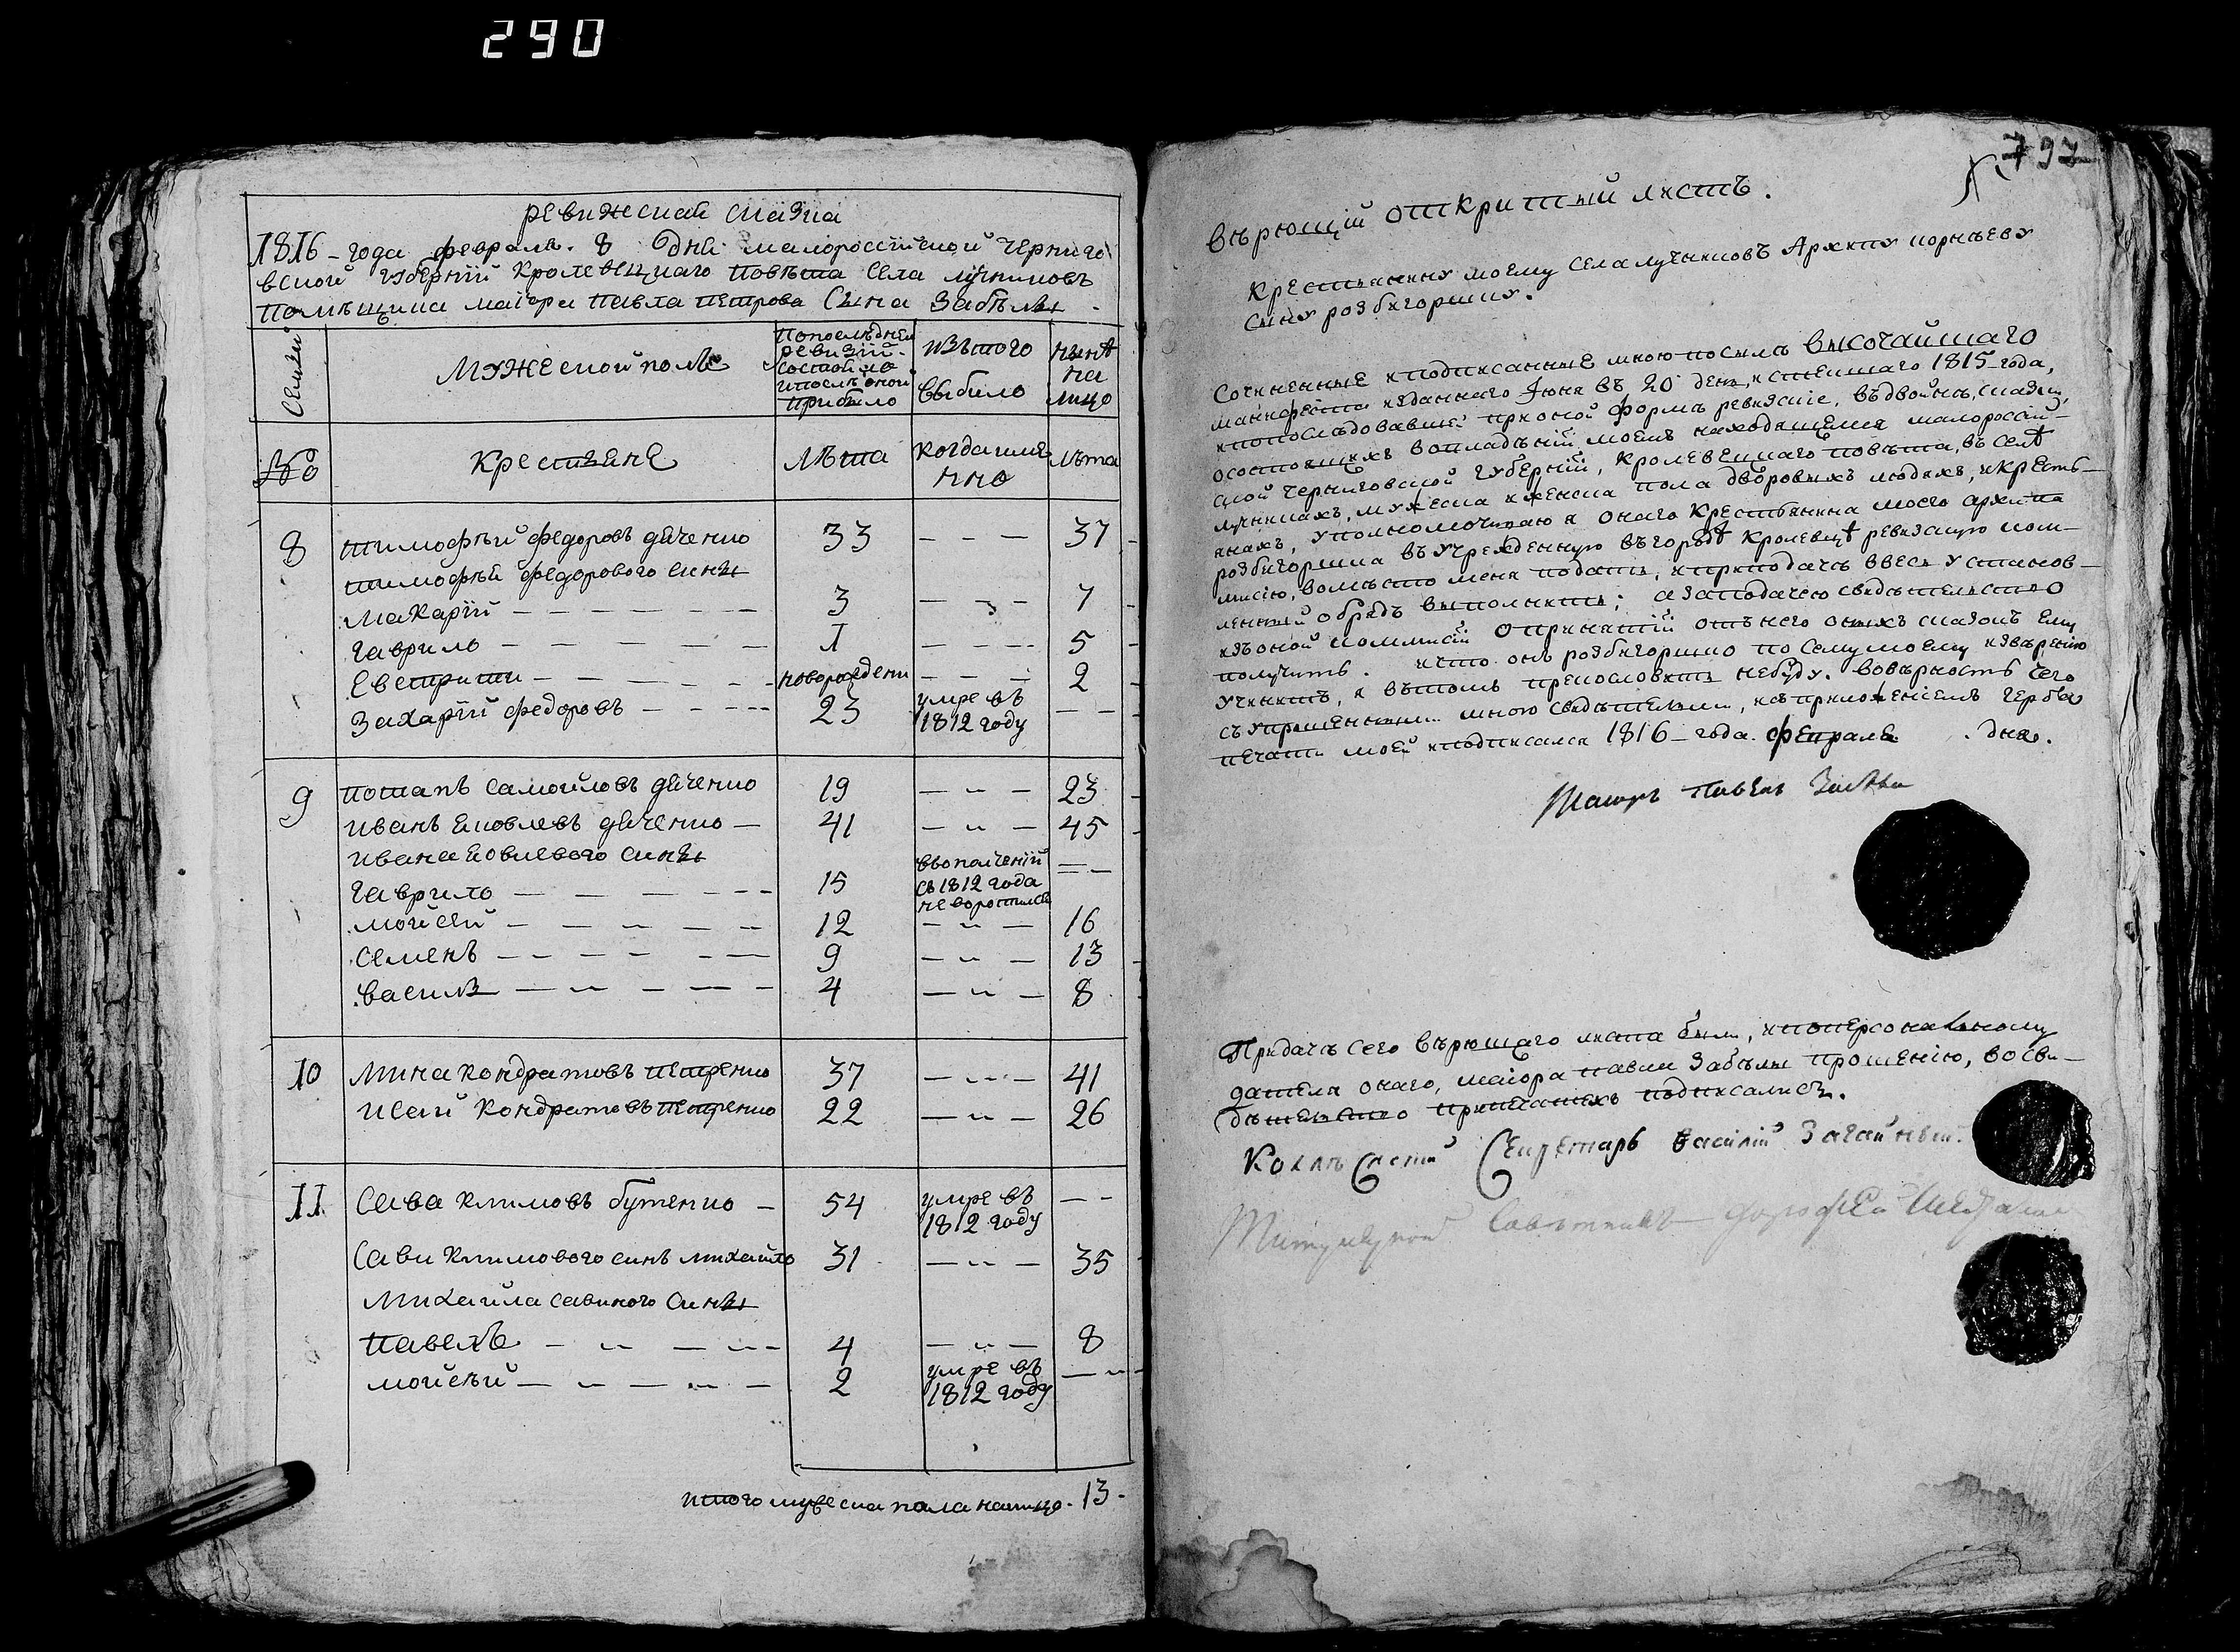 290
ревижская сказка
1816 года февраля 8 дня малороссийской чернего
вской губернии Кролевецкаго повѣта села лучниковъ
помѣщика маіора Павла петрова сына Забѣлы
Семьи
Мужеской полъ
По последней ревизіи состояло и после оной прибыло
Изъ того выбило
Нынѣ на лицо
№
Крестьяне
Лѣта
когда именно
Лѣта
8 тимофѣй федоровъ дяченко 33 — — — 37
тимофѣя федорового сины
макарій 3 — — — 7
гаврило 1 — — — 5
новорожденн — — — 2
захарій федоровъ 23 умре въ 1812 году — —
9 потапъ самойловъ дяченко 19 — „ — 23
иванъ яковлевъ дяченко — 41 — „ — 45
ивана яковлевого сины
гаврило 15 в ополченіи съ 1812 года не воротился — —
мойсей 12 — „ — 16
семенъ 9 — „ — 13
василь 4 — „ — 8
10 Мина кондратовъ петренко 37 — „ — 41
исай кондратовъ петренко 22 — „ — 26
11 Сава климовъ бутенко — 54 умре въ 1812 году — —
Сави климового синъ михайло 31 — „ — 35
михайла савиного сины
павелъ 4 — „ — 8
мойсѣй 2 умре въ 1812 году — „ —
итого мужеска пола налицо 13
797
вѣрющій открытый листъ.
Крестьянину моему села лучниковъ Архипу корнѣеву
сину розбигоршку.
Сочиненные и подписанные мною по силѣ высочайшаго
манифеста изданнаго Іюня въ 20 день, истекшаго 1815 года,
и по последовавшей при оной формѣ ревизскіе, въ двойнѣ, сказки,
о состоящихъ во владѣніи моемъ находящемся малороссій-
ской черниговской губерніи, кролевецкаго повѣта, въ селѣ
лучникахъ, мужеска и женска пола дворовыхъ людяхъ, и кресть-
янахъ, уполномочиваю я онаго крестьянина моего архипа
розбигоршка въ учрежденную въ городѣ Кролевцѣ ревизскую ком-
мисію, вомѣсто меня подать, и при подачѣ ввесь установ-
ленный обрядъ выполнить; а за подачею свидѣтельство
изъ оной коммисіи о принятіи отъ него оныхъ сказокъ ему
получить. и что онъ розбигоршко по сему моему извѣренію
учинитъ, я въ томъ прекословить небуду. вовѣрность чего
съ упрошенными мною свидѣтельми, и съ приложеніемъ герба
печати моей и подписался 1816 года февраля . дня.
Маіоръ Павелъ Забѣла
При дачѣ сего вѣрющаго листа были, и по персональному
дателя онаго, маіора павла Забѣлы прошенію, во сви-
дѣтельство при печатехъ подписались.
Коллѣжскій Секретарь Василій
Титулярной Совѣтникъ